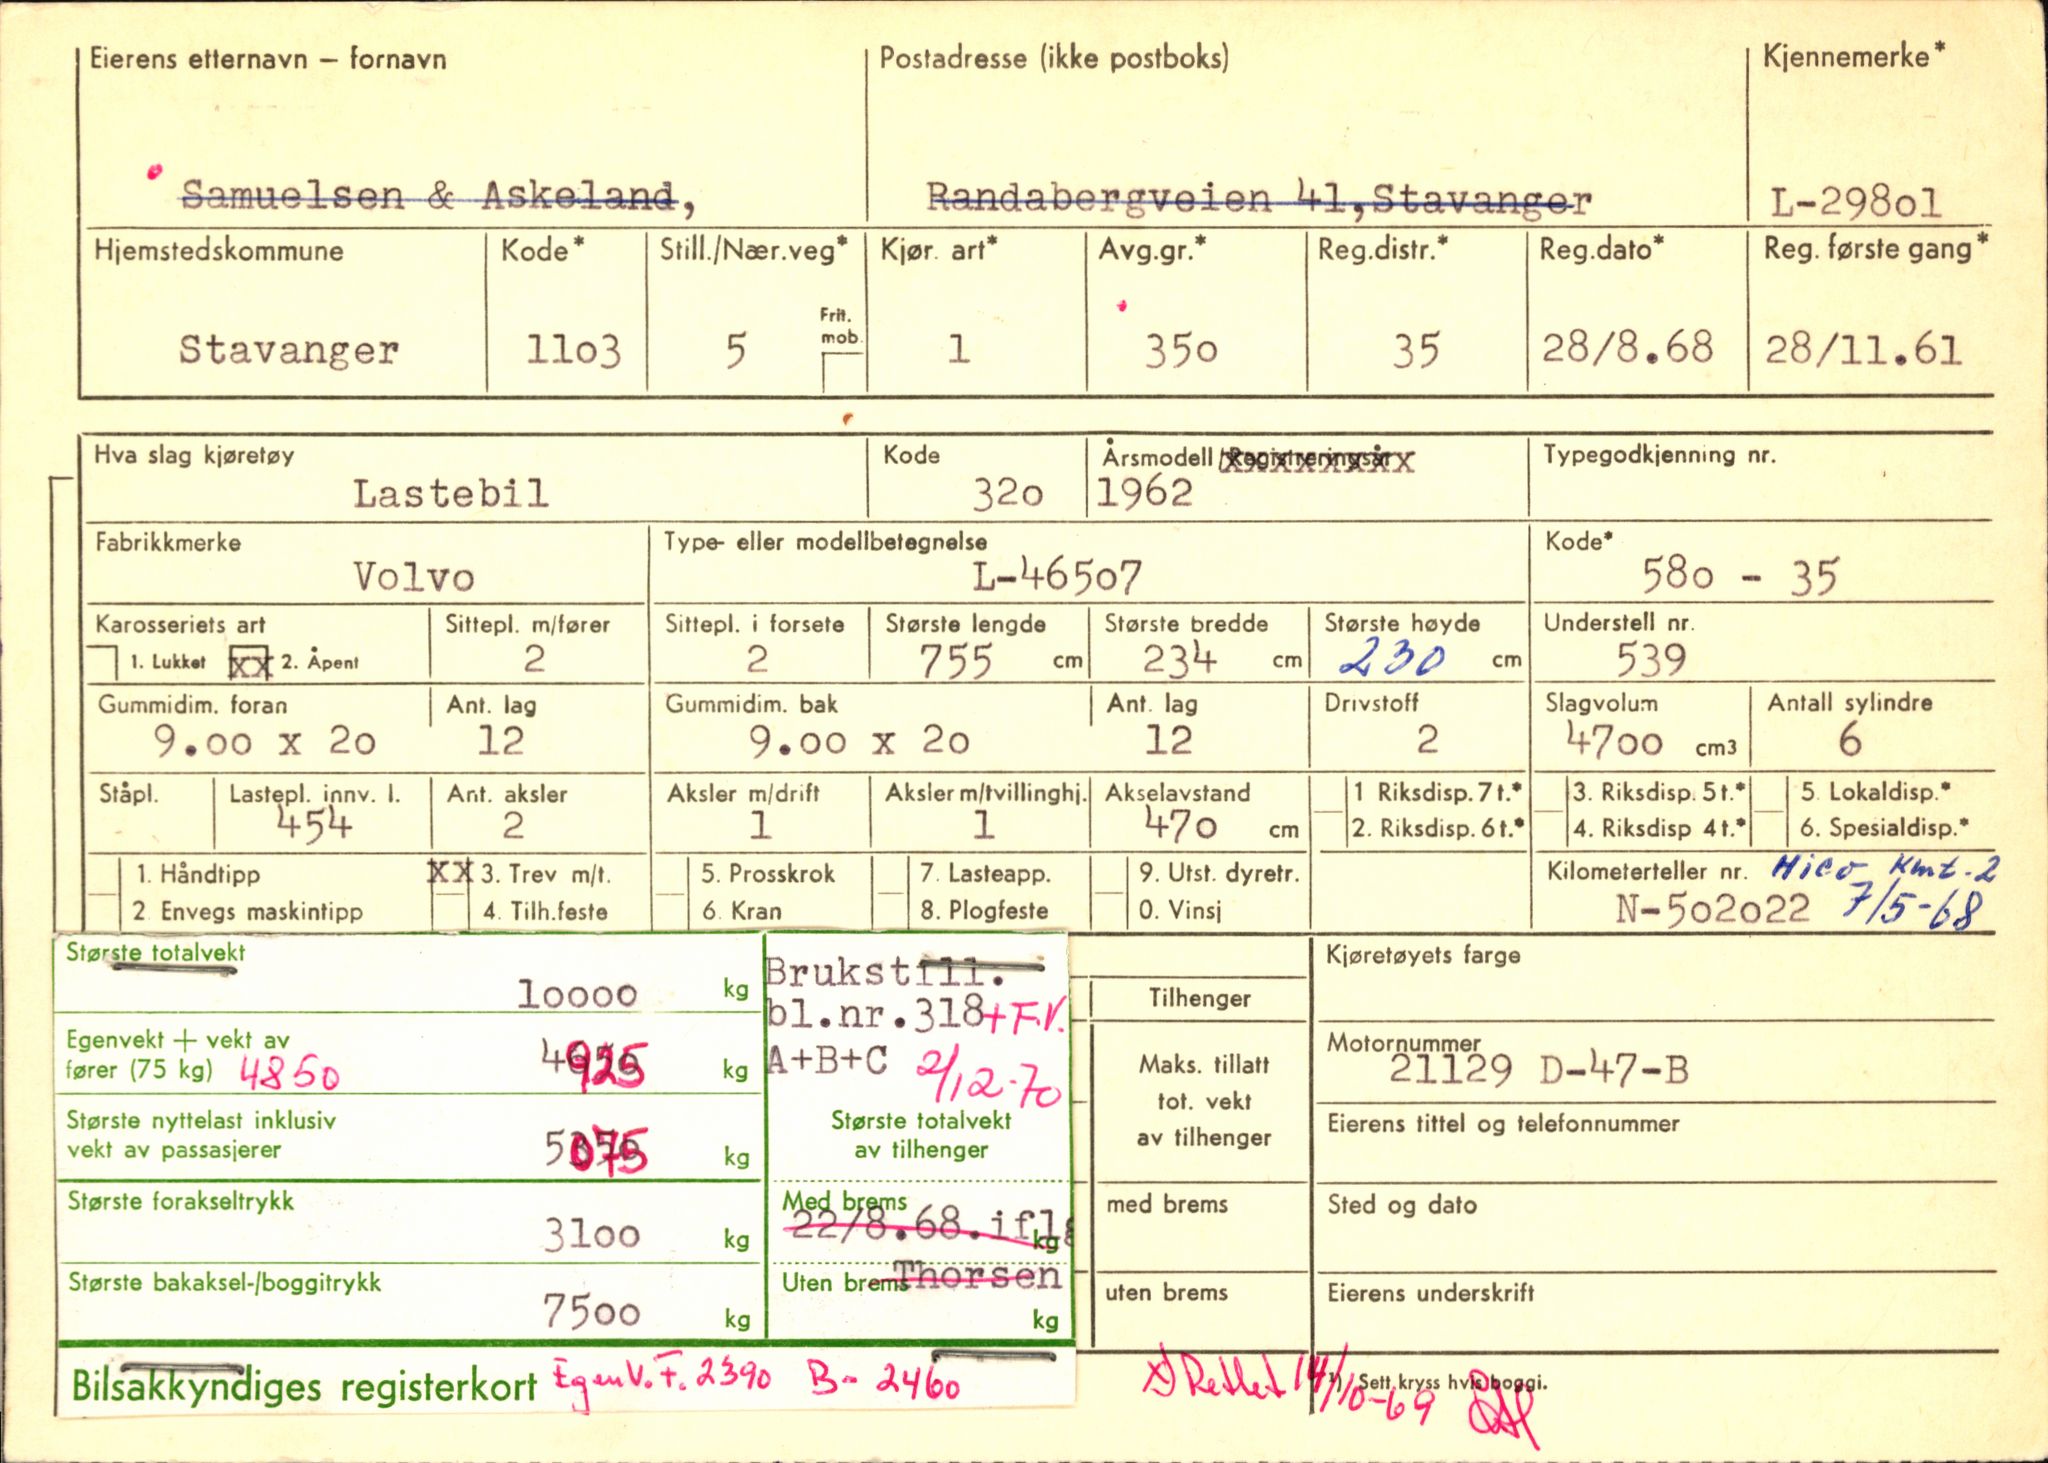 Eierens etternavn – fornavn Postadresse (ikke postboks) Kjennemerke*
Samuelsen & Askeland, Randabergveien 41, Stavanger L-298o1
Hjemstedskommune Kode* Still./Nær.veg* Kjør. art* Avg.gr.* Reg.distr.* Reg.dato* Reg. første gang*
Frit. mob.
Stavanger 11o3 5 1 35o 35 28/8.68 28/11.61
Hva slag kjøretøy Kode Årsmodell/Registreringsår Typegodkjenning nr.
Lastebil 32o 1962
Fabrikkmerke Type- eller modellbetegnelse Kode*
Volvo L-465o7 58o - 35
Karosseriets art Sittepl. m/fører Sittepl. i forsete Største lengde Største bredde Største høyde Understell nr.
1. Lukket xx 2. Åpent 2 2 755 cm 234 cm 230 cm 539
Gummidim. foran Ant. lag Gummidim. bak Ant. lag Drivstoff Slagvolum Antall sylindre
9.oo x 2o 12 9.oo x 2o 12 2 47oo cm3 6
Ståpl. Lastepl. innv. l. Ant. aksler Aksler m/drift Aksler m/tvillinghj. Akselavstand 1 Riksdisp. 7 t.* 3. Riksdisp. 5 t.* 5. Lokaldisp.*
454 2 1 1 47o cm 2. Riksdisp. 6 t.* 4. Riksdisp 4 t.* 6. Spesialdisp.*
1. Håndtipp xx 3. Trev m/t. 5. Prosskrok 7. Lasteapp. 9. Utst. dyretr. Kilometerteller nr. Hico Kmt.-2
2 Envegs maskintipp 4. Tilh.feste 6. Kran 8. Plogfeste 0. Vinsj N-5o2o22 7/5-68
Største totalvekt 1oooo kg
Brukstill.
bl.nr.318 + F.V.
A+B+C 2/12-70
Egenvekt + vekt av
fører (75 kg) 4850 4925 kg
Største nyttelast inklusiv
vekt av passasjerer 5075 kg
Største forakseltrykk 31oo kg
Største bakaksel-/boggitrykk 75oo kg
Største totalvekt
av tilhenger
Med brems
22/8.68.iflg kg
Uten brems Thorsen
kg
Bilsakkyndiges registerkort Egen V. F. 2390 B- 2460
Tilhenger
Maks. tillatt
tot. vekt
av tilhenger
med brems
uten brems
Kjøretøyets farge
Motornummer
21129 D-47-B
Eierens tittel og telefonnummer
Sted og dato
Eierens underskrift
x) Rettet 14/10-69
¹) Sett kryss hvis boggi.